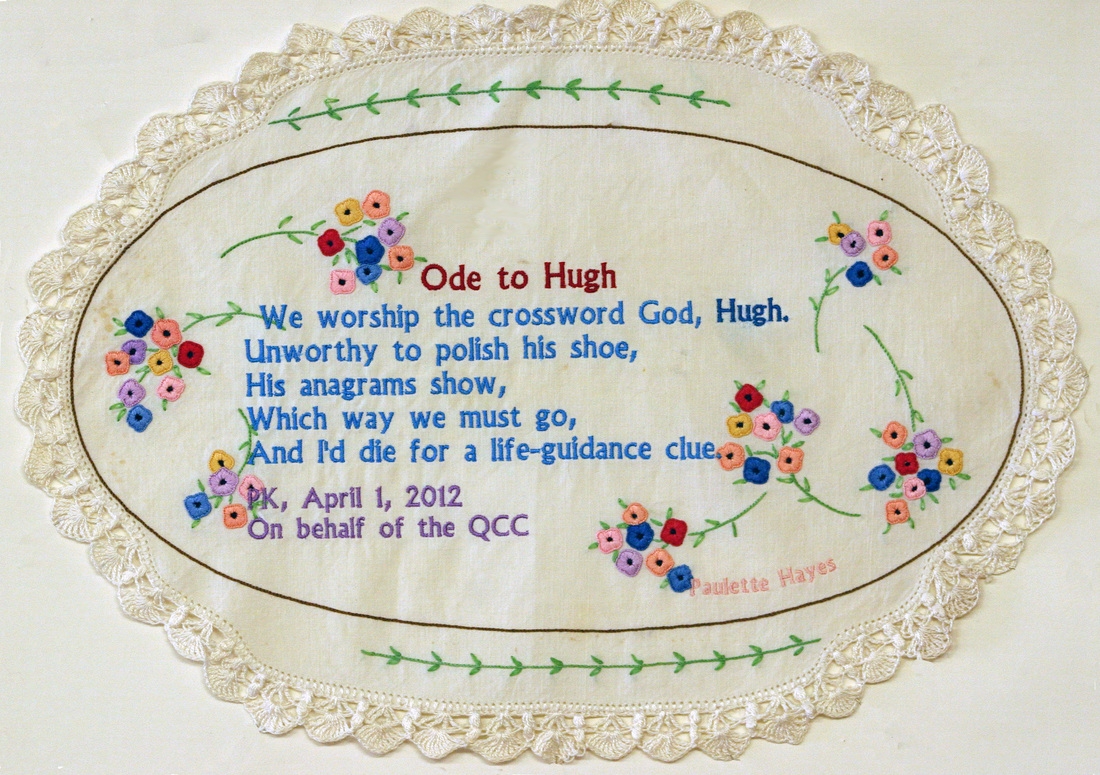 Ode to Hugh
We worship the crossword God, Hugh.
Unworthy to polish his shoe,
His anagrams show,
Which way we must go,
And I'd die for a life-guidance clue.
PK, April 1, 2012
On behalf of the QCC
Paulette Hayes